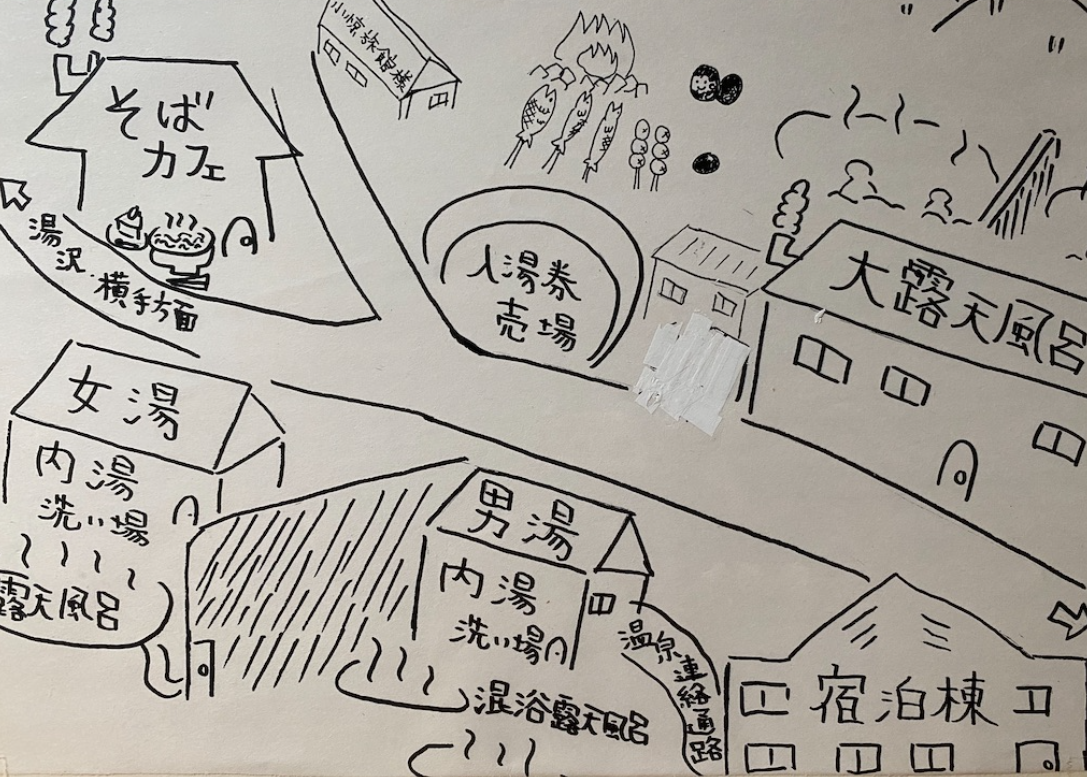 小椋旅館様
そば
カフェ
湯沢・横手方面
入湯券
売場
大露天風呂
女湯
内湯
洗い場
露天風呂
男湯
内湯
洗い場
混浴露天風呂
温泉連絡通路
宿泊棟